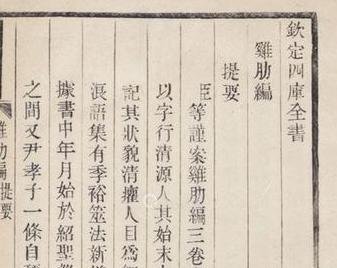 欽定四庫全書
雞肋編
提要
臣等謹案雞肋編三卷
以字行清源人其始末
記其狀貌清癯人目為
浪語集有季裕筮法新
據書中年月始於紹聖
之間又尹孝子一條自
雞肋編提要